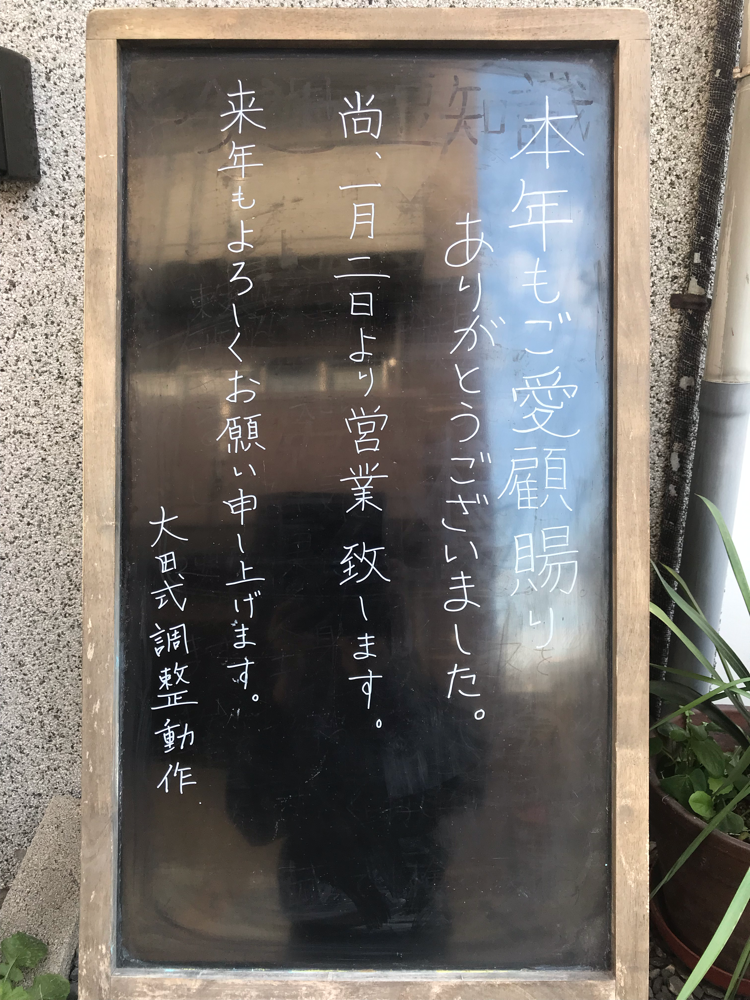 本年もご愛顧賜り
ありがとうございました。
尚、一月二日より営業致します。
来年もよろしくお願い申し上げます。
大田式調整動作